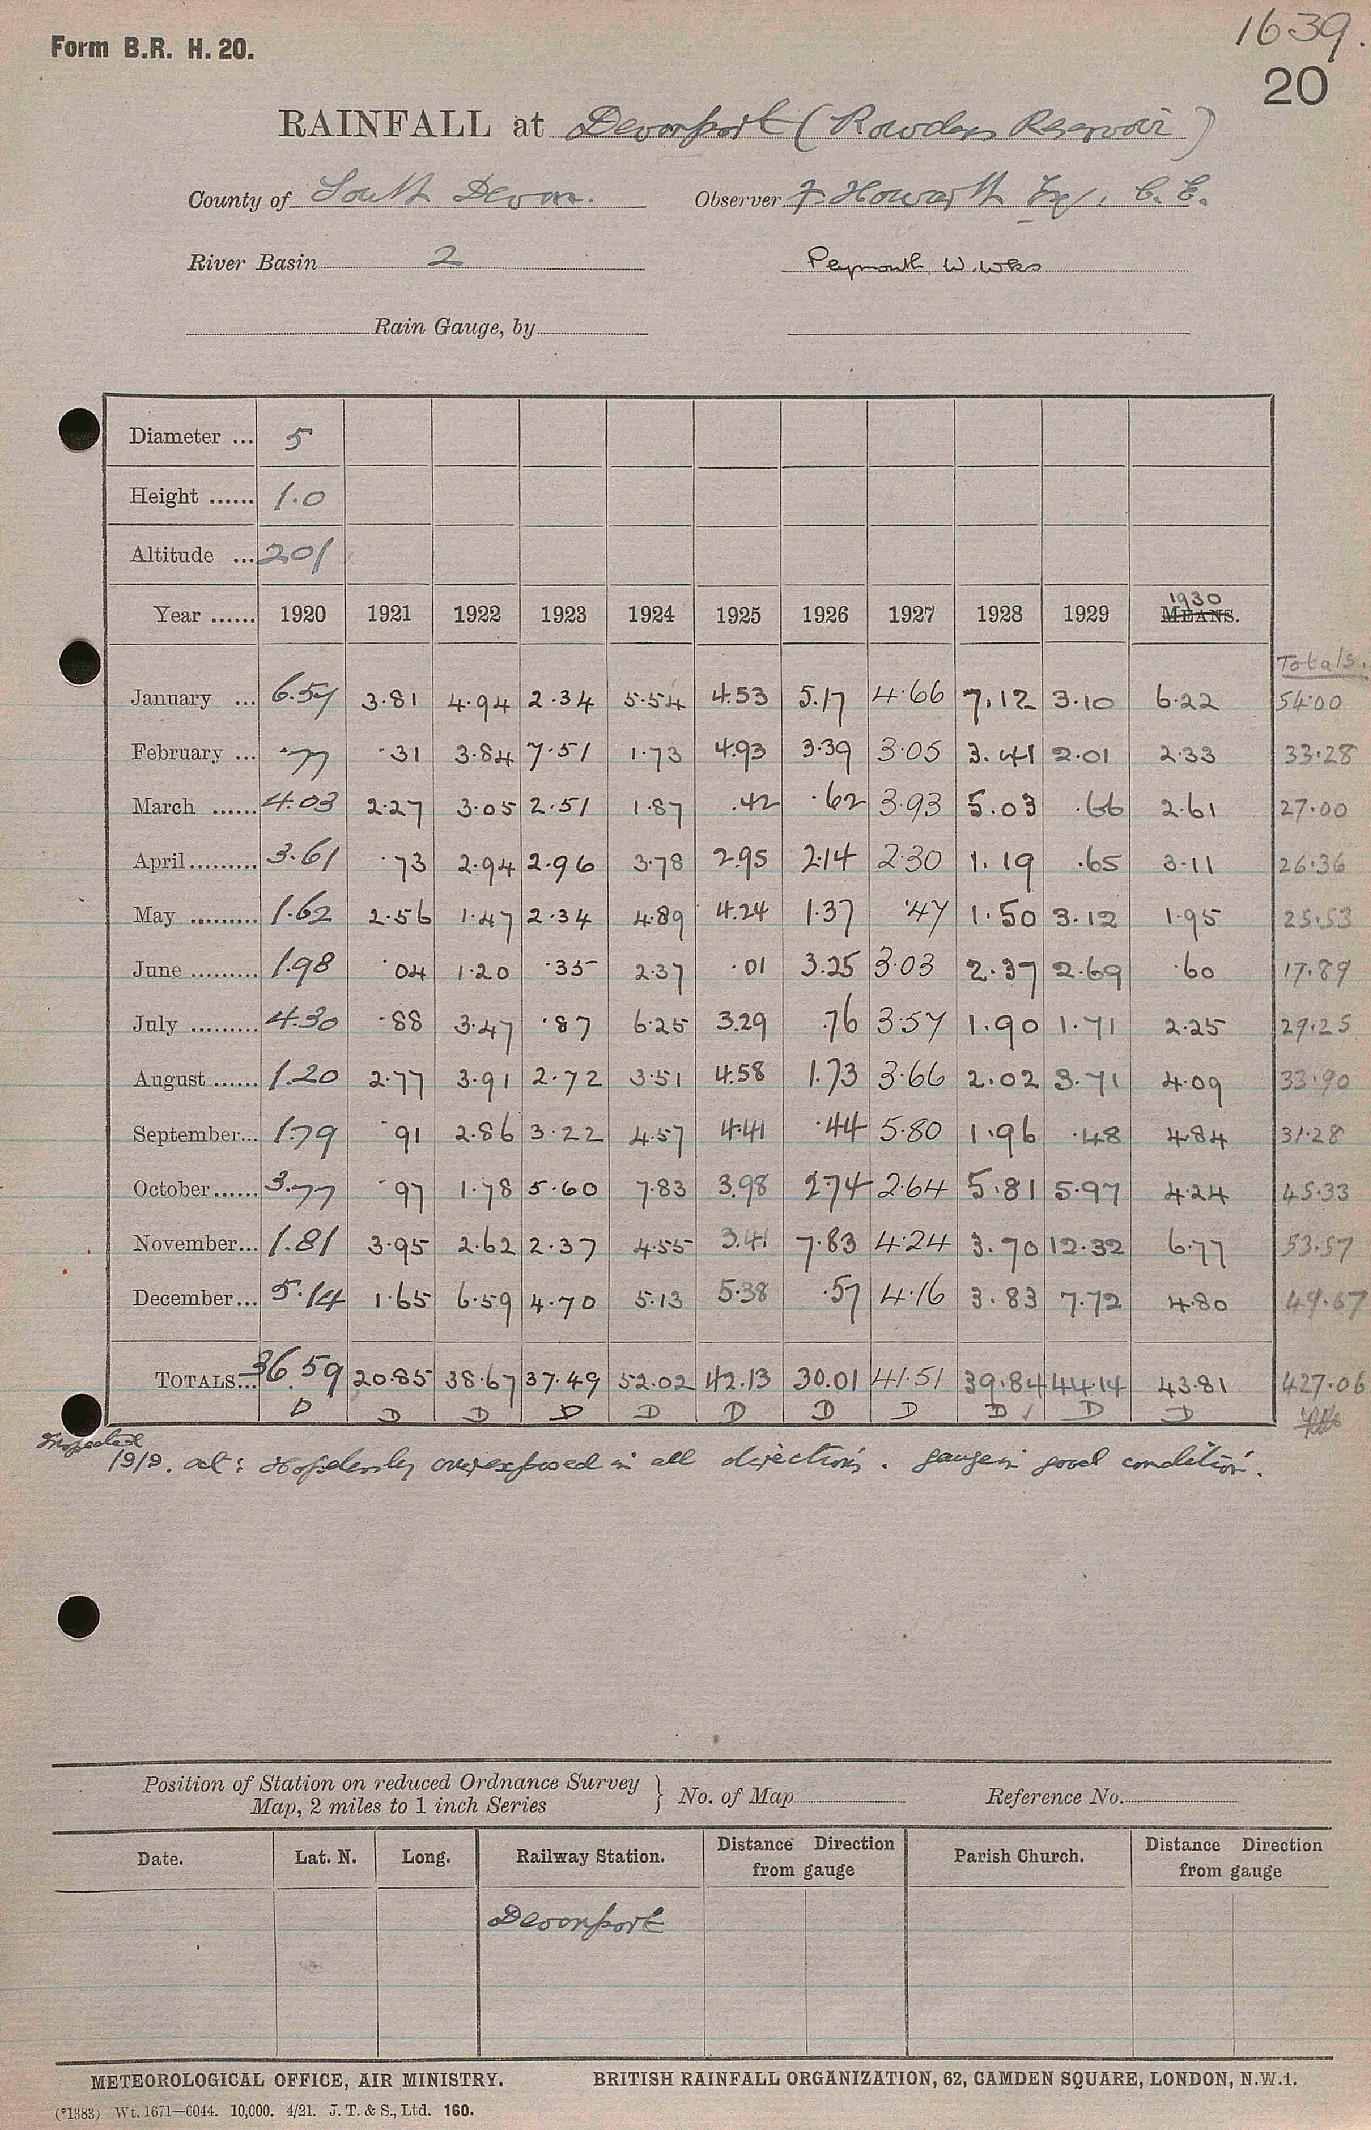 1639.
Form B.R. H. 20.
20
RAINFALL at Devonport (Rowdens Reservoir)
County of South Devon. Observer F Howarth Esq. C.E.
River Basin 2 Plymouth W. Wks
Rain Gauge, by
Diameter ... 5
Height ...... 1.0
Altitude ... 201
Year ...... 1920 1921 1922 1923 1924 1925 1926 1927 1928 1929 1930 MEANS.
Totals.
January ... 6.57 3.81 4.94 2.34 5.54 4.53 5.17 4.66 7.12 3.10 6.22 54.00
February ... .77 .31 3.84 7.51 1.73 4.93 3.39 3.05 3.41 2.01 2.33 33.28
March ...... 4.03 2.27 3.05 2.51 1.87 .42 .62 3.93 5.03 .66 2.61 27.00
April ......... 3.61 .73 2.94 2.96 3.78 2.95 2.14 2.30 1.19 .65 3.11 26.36
May ......... 1.62 2.56 1.47 2.34 4.89 4.24 1.37 .47 1.50 3.12 1.95 25.53
June ......... 1.98 .04 1.20 .35 2.37 .01 3.25 3.03 2.37 2.69 .60 17.89
July ......... 4.30 .88 3.47 .87 6.25 3.29 .76 3.57 1.90 1.71 2.25 29.25
August ...... 1.20 2.77 3.91 2.72 3.51 4.58 1.73 3.66 2.02 3.71 4.09 33.90
September... 1.79 .91 2.86 3.22 4.57 4.41 .44 5.80 1.96 .48 4.84 31.28
October ...... 3.77 .97 1.78 5.60 7.83 3.98 2.74 2.64 5.81 5.97 4.24 45.33
November... 1.81 3.95 2.62 2.37 4.55 3.41 7.83 4.24 3.70 12.32 6.77 53.57
December... 5.14 1.65 6.59 4.70 5.13 5.38 .57 4.16 3.83 7.72 4.80 49.67
TOTALS... 36.59 20.85 38.67 37.49 52.02 42.13 30.01 41.51 39.84 44.14 43.81 427.06
D D D D D D D D D ✓ D D
Inspected
1919. Hopelessly overexposed in all directions. gauge in good condition.
Position of Station on reduced Ordnance Survey
Map, 2 miles to 1 inch Series } No. of Map Reference No.
Date. Lat. N. Long. Railway Station. Distance Direction from gauge Parish Church. Distance Direction from gauge
Devonport
METEOROLOGICAL OFFICE, AIR MINISTRY. BRITISH RAINFALL ORGANIZATION, 62, CAMDEN SQUARE, LONDON, N.W.1.
(*1383) Wt. 1671—6044. 10,000. 4/21. J. T. & S., Ltd. 160.